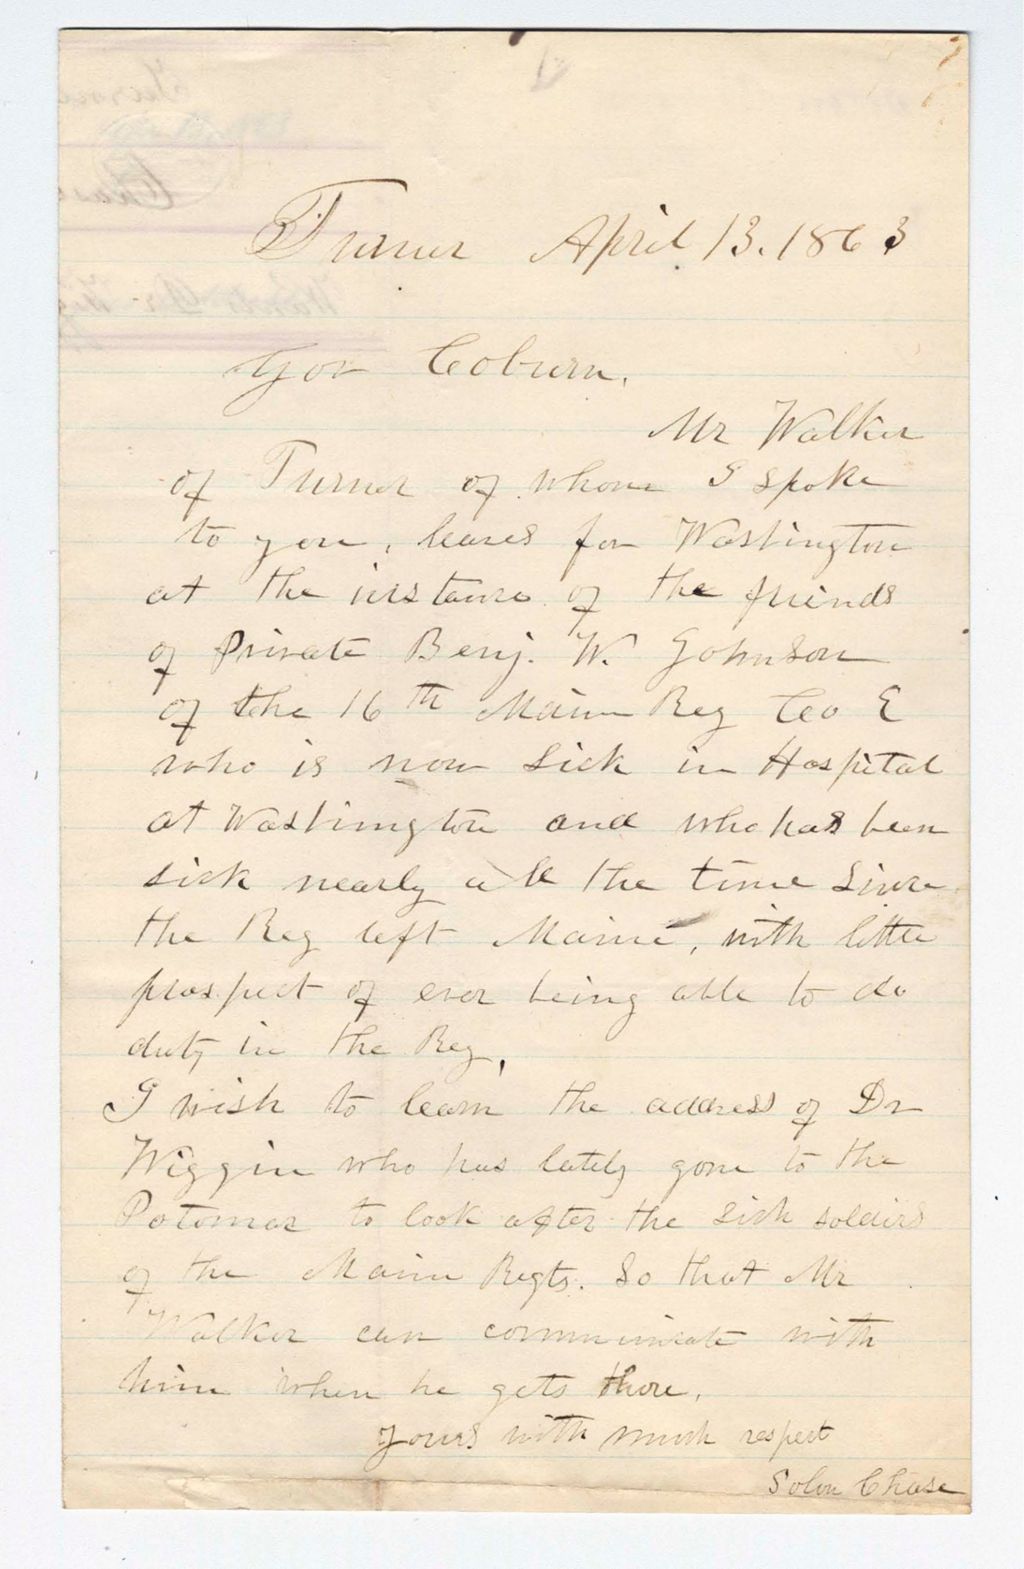 Turner April 13. 1863
Gov Coburn.
Mr Walker
of Turner of whom I spoke
to you, leaves for Washington
at the instance of the friends
of Private Benj. W. Johnson
of the 16th Maine Reg Co E
who is now sick in Hospital
at Washington and who has been
sick nearly all the time since
the Reg left Maine, with little
prospect of ever being able to do
duty in the Reg,
I wish to learn the address of Dr
Wiggin who has lately gone to the
Potomac to look after the sick soldiers
of the Maine Regts. So that Mr
Walker can communicate with
him when he gets there.
Yours with much respect
Solon Chase